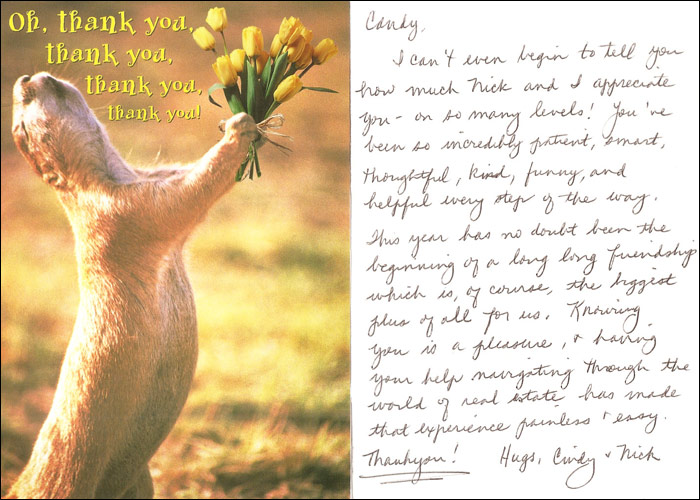 Oh, thank you,
thank you,
thank you,
thank you!
Candy,
I can't even begin to tell you
how much Nick and I appreciate
you - on so many levels! You've
been so incredibly patient, smart,
thoughtful, kind, funny, and
helpful every step of the way.
This year has no doubt been the
beginning of a long long friendship
which is, of course, the biggest
plus of all for us. Knowing
you is a pleasure, & having
your help navigating through the
world of real estate has made
that experience painless & easy.
Thankyou! Hugs, Cindy & Nick